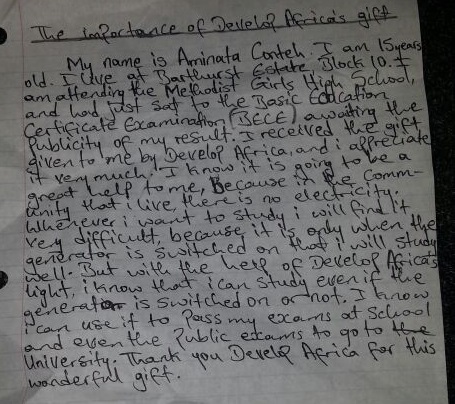 The importance of Develop Africa's gift
My name is Aminata Conteh. I am 15years
old. I live at Barthurst Estate Block 10. I
am attending the Methodist Girls High School,
and had just sat to the Basic Education
Certificate Examination (BECE) awaiting the
Publicity of my result. I received the gift
given to me by Develop Africa, and i appreciate
it very much. I know it is going to be a
great help to me, Because in the Comm-
unity that i live there is no electricity.
Whenever i want to study i will find it
very difficult, because it is only when the
generator is switched on that i will study
well. But with the help of Develop Africa's
light, i know that i can study even if the
generator is switched on or not. I know
i can use it to Pass my exams at School
and even the Public exams to go to the
University. Thank you Develop Africa for this
wonderful gift.